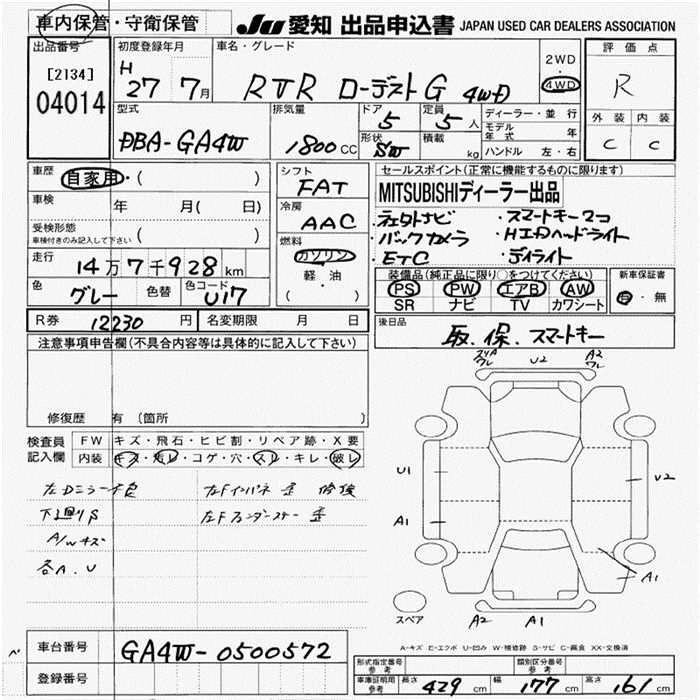 車内保管・守衛保管
JU 愛知 出品申込書 JAPAN USED CAR DEALERS ASSOCIATION
出品番号
[2134]
04014
初度登録年月
H 27 7月
車名・グレード
RVR ローデスト G 4WD
2WD
・
4WD
評価点
R
外装 内装
C C
型式
DBA-GA4W
排気量
1800 CC
ドア
5
定員
5 人
形状
SW
積載
kg
ディーラー・並行
モデル年式 年
ハンドル 左・右
車歴
自家用・( )
車検 年 月( 日)
受検形態
車検付きのみ記入して下さい ( )
走行
14万7千928km
色
グレー
色替
色コード
U17
シフト
FAT
冷房
AAC
燃料
ガソリン
軽・油
( )
セールスポイント(正常に機能するものに限ります)
MITSUBISHIディーラー出品
・バックカメラ
・ETC
・スマートキー2コ
・HIDヘッドライト
・デイライト
装備品(純正品に限り○をつけてください)
PS PW エアB AW
SR ナビ TV カワシート
新車保証書
有・無
R券 12230 円
名変期限 月 日
後日品
取.保.スマートキー
注意事項申告欄(不具合内容等は具体的に記入して下さい)
修復歴 有 〔箇所 〕
検査員記入欄
FW キズ・飛石・ヒビ割・リペア跡・X要
内装 キズ・汚レ・コゲ・穴・スレ・キレ・破レ
左Dミラー不良
下廻りS
A/Wキズ
各A.U
左Fインパネ 歪 修復
左Fフェンダーステー 歪
U2
A2
U1
U2
A1
A1
スペア
A2
A1
A-キズ E-エクボ U-凹み W-補修跡 S-サビ C-腐食 XX-交換済
車台番号
GA4W-0500572
登録番号
形式指定番号
参考
類別区分番号
参考
車庫証明用
参考
長さ 429 cm 幅 177 cm 高さ 161 cm